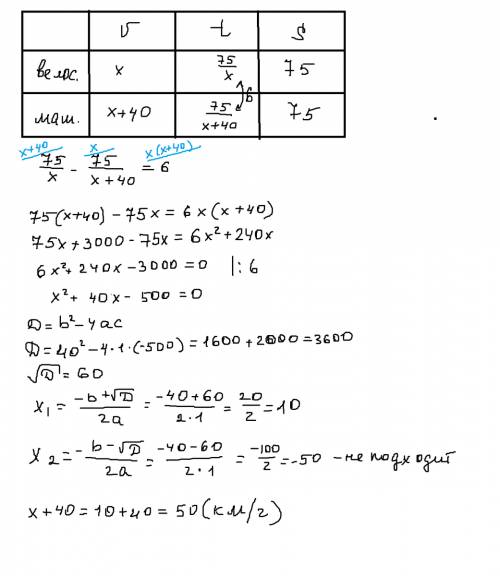 v t S
велос. x 75/x 75
6
маш. x+40 75/x+40 75
x+40 x x(x+40)
75/x - 75/x+40 = 6
75(x+40) - 75x = 6x(x+40)
75x + 3000 - 75x = 6x² + 240x
6x² + 240x - 3000 = 0 |: 6
x² + 40x - 500 = 0
D = b² - 4ac
D = 40² - 4·1·(-500) = 1600 + 2000 = 3600
√D = 60
x₁ = -b+√D/2a = -40+60/2·1 = 20/2 = 10
x₂ = -b-√D/2a = -40-60/2·1 = -100/2 = -50 - не подходит
x+40 = 10+40 = 50 (км/г)